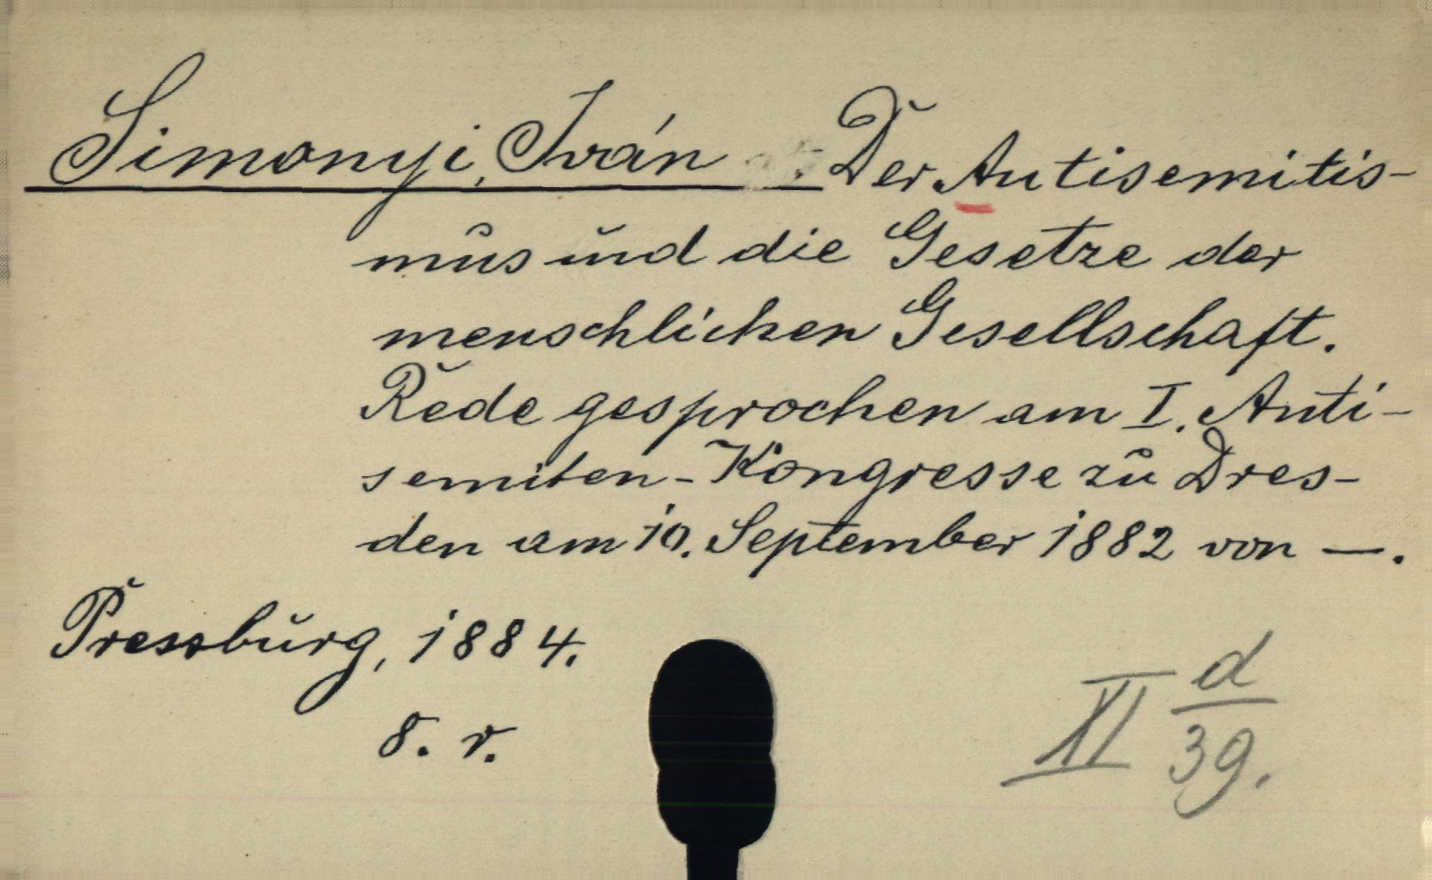 Simonyi, Iván. Der Antisemitis-
mus und die Gesetze der
menschlichen Gesellschaft.
Rede gesprochen am I. Anti-
semiten-Kongresse zu Dres-
den am 10. September 1882 von —.
Pressburg, 1884.
8. r.
XI d/39.